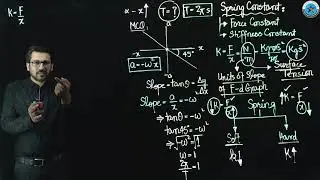 K=F/x
a∝-x
MCQ:
T=?
T=2πs
a
-x
x
45°
a=-ω²x
Slope=tanθ=Δy/Δx
Slope=a/x=-ω²
⇒tanθ=-ω²
tan45°=-ω²
⇒-ω²=1
ω=1
2π/T=1
Spring Constant:
→ Force Constant
→ Stiffness Constant
K=F/x=N/m=Kgms⁻²/m=Kgs⁻²
Surface Tension
Units of Slope of F-d Graph
K=F/x
Spring
Soft
Hard
K↓
K↑